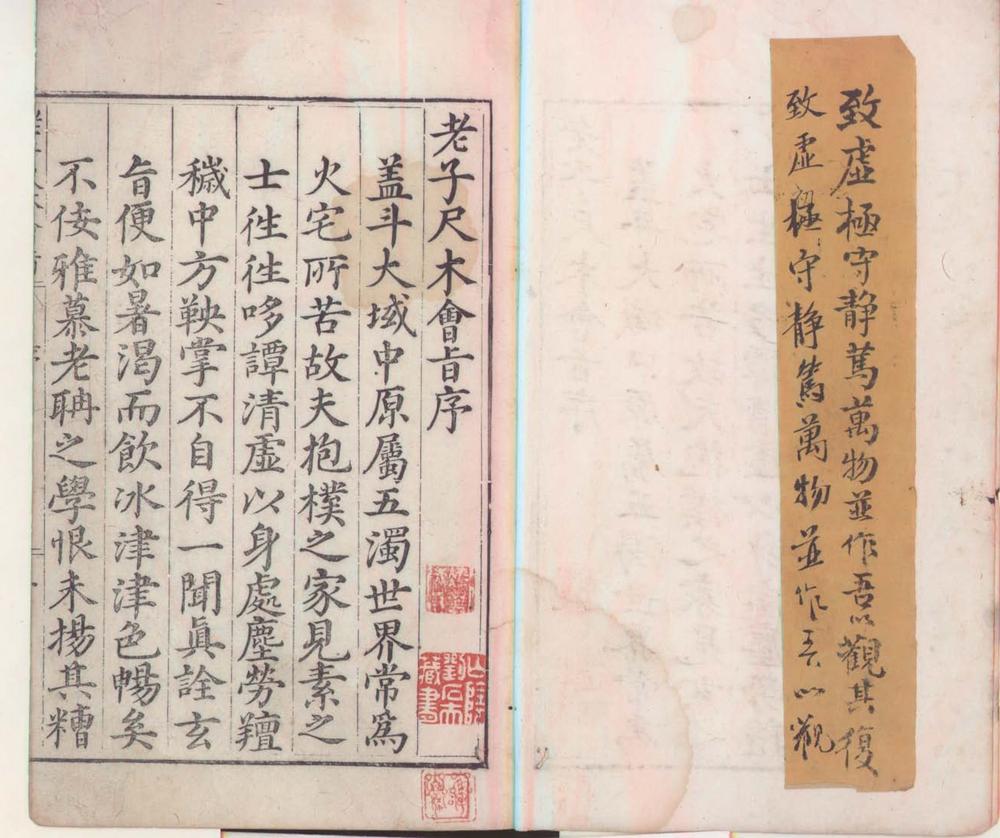 致虛極守静篤萬物並作吾以觀其復
致虛極守静篤萬物並作吾以觀
老子尺木會旨序
盖斗大域中原屬五濁世界常爲
火宅所苦故夫抱樸之家見素之
士徃徃哆譚清虛以身處塵勞羶
穢中方鞅掌不自得一聞眞詮玄
旨便如暑渴而飲冰津津色暢矣
不佞雅慕老聃之學恨未揚其糟
山陰劉
藏書